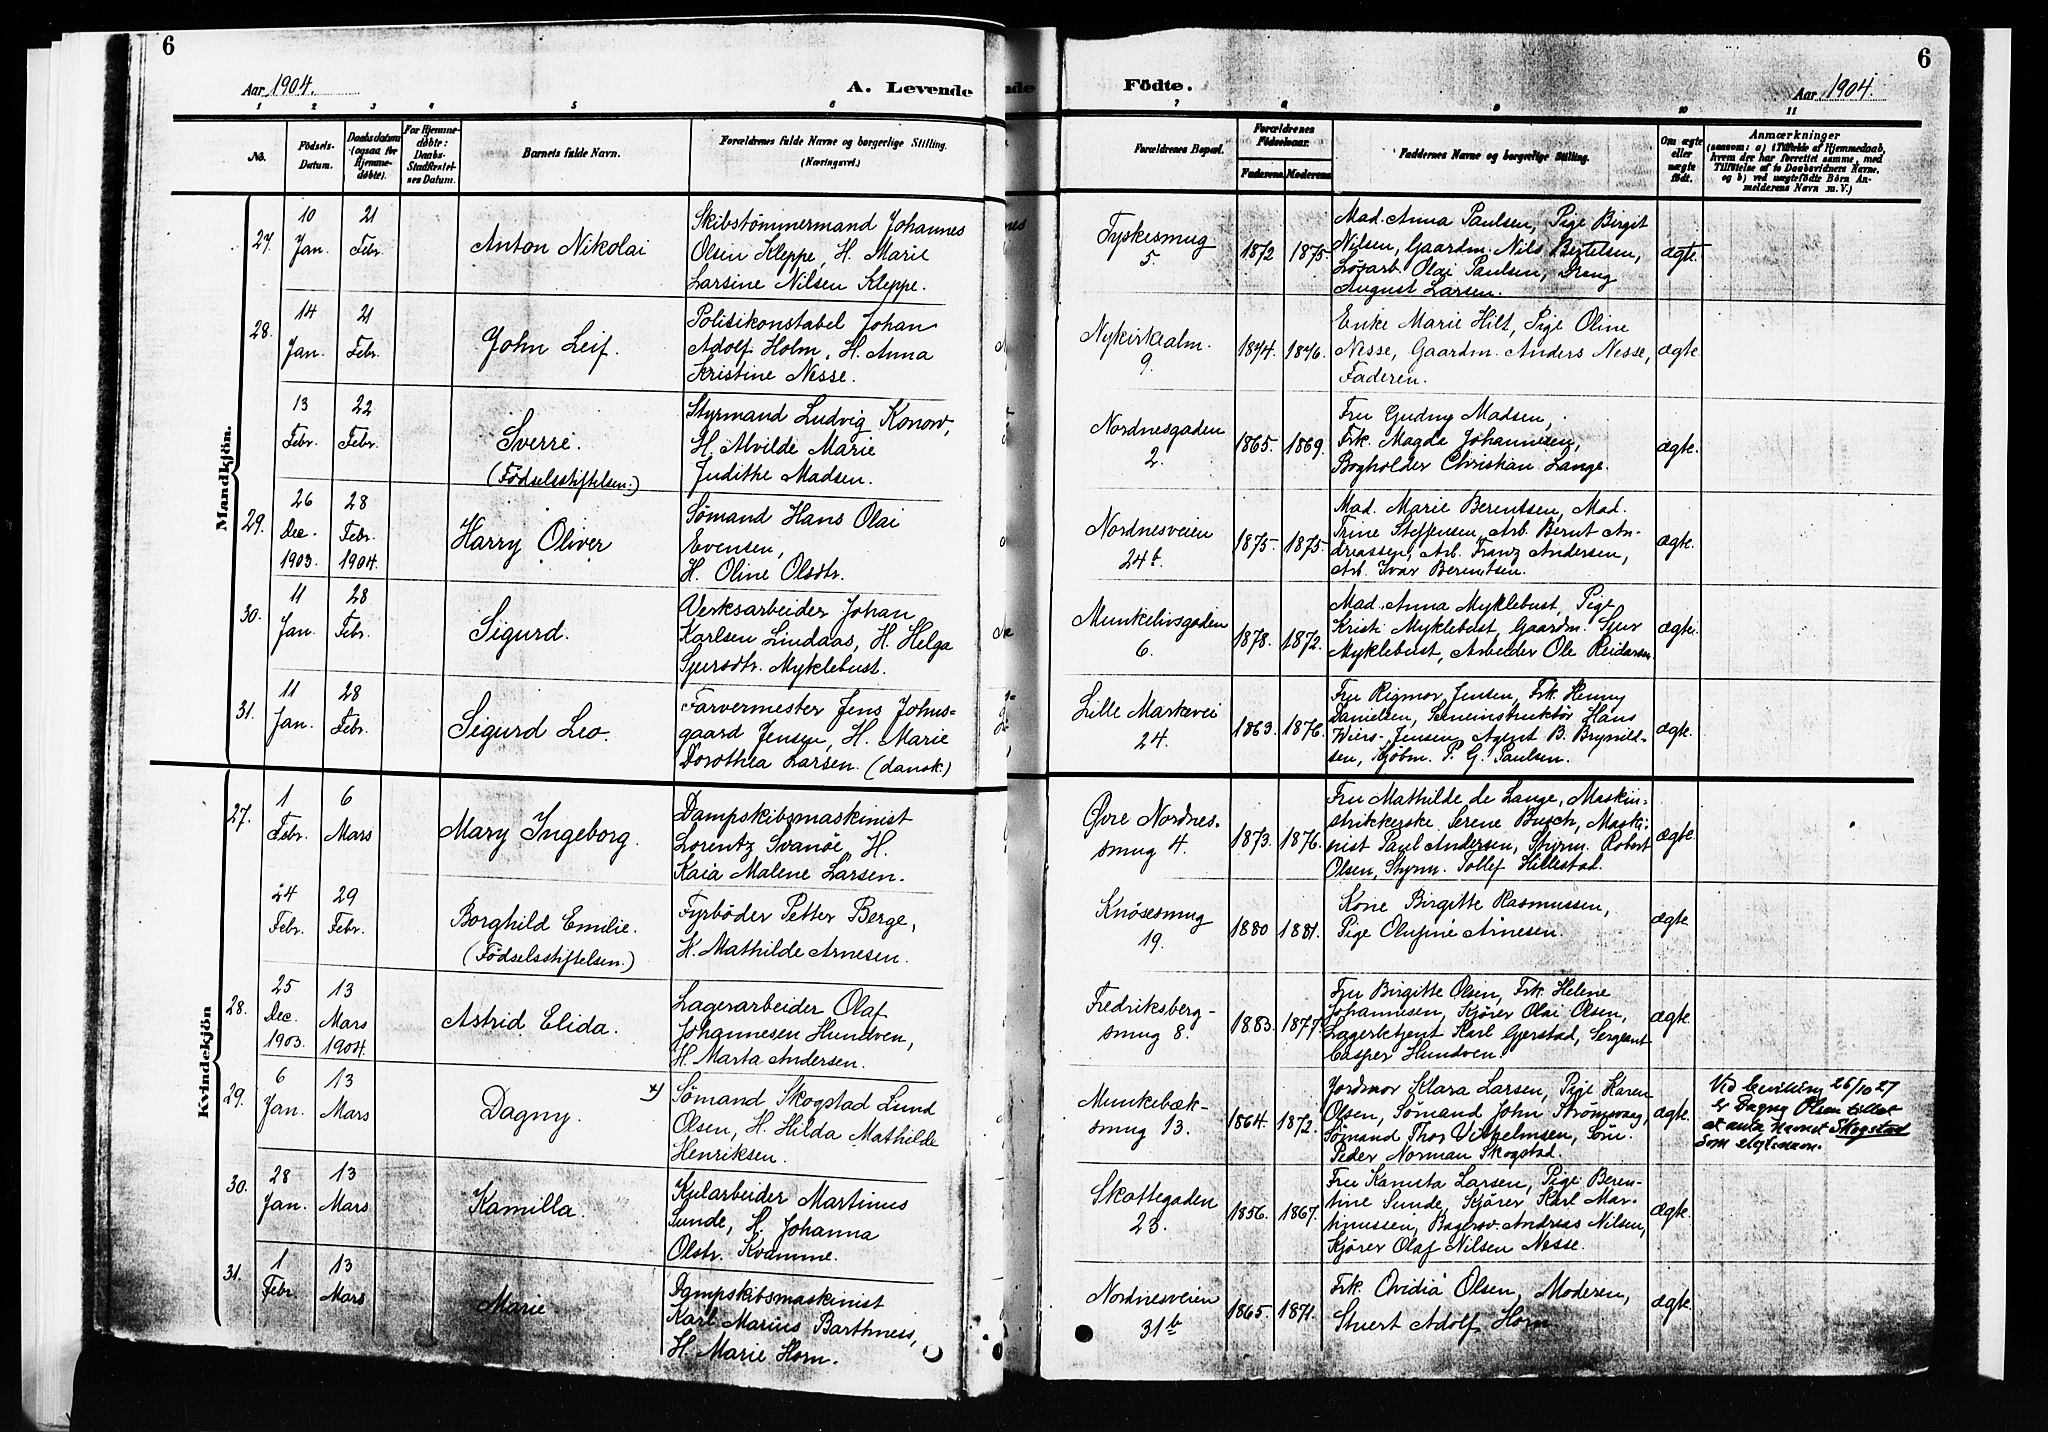 6
Aar 1904.
A. Levende
1 2 3 4 5 6
No.
Födsels-
Datum.
Daabsdatum
(ogsaa for
Hjemme-
døbte).
For Hjemme-
døbte:
Daabs-
Stadfæstel-
ses Datum.
Barnets fulde Navn.
Forældrenes fulde Navne og borgerlige Stilling.
(Næringsvei.)
Mandkjön.
27.
10
Jan.
21
Febr.
Anton Nikolai
Skibstømmermand Johannes
Olsen Kleppe, H. Marie
Larsine Nilsen Kleppe.
28.
14
Jan.
21
Febr.
John Leif.
Politikonstabel Johan
Adolf Holm, H. Anna
Kristine Nesse.
13
Febr.
22
Febr.
Sverre.
(Fødselsstiftelsen.)
Styrmand Ludvig Konow,
H. Alvilde Marie
Judithe Madsen.
29.
26
Dec.
1903.
28
Febr.
1904.
Harry Oliver
Sømand Hans Olai
Evensen,
H. Oline Olsdtr.
30.
11
Jan.
28
Febr.
Sigurd.
Verksarbeider Johan
Karlsen Lindaas, H. Helga
Sjursdtr. Myklebust.
31.
11
Jan.
28
Febr.
Sigurd Leo.
Farvermester Jens Johns-
gaard Jensen, H. Marie
Dorothea Larsen. (dansk.)
Kvindekjön
27.
1
Febr.
6
Mars
Mary Ingeborg.
Dampskibsmaskinist
Lorentz Svanöe H.
Kaia Malene Larsen.
24
Febr.
29
Febr.
Borghild Emilie.
(Fødselsstiftelsen.)
Fyrbøder Petter Berge,
H. Mathilde Arnesen.
28.
25
Dec.
1903.
13
Mars
1904.
Astrid Elida.
Lagerarbeider Olaf
Johannesen Hundven,
H. Marta Andersen.
29.
6
Jan.
13
Mars
Dagny.
x)
Sømand Skogstad Lund
Olsen, H. Hilda Mathilde
Henriksen.
30.
28
Jan.
13
Mars
Kamilla.
Kularbeider Martinus
Sunde, H. Johanna
Olstr. Kvamme.
31.
1
Febr.
13
Mars
Marie
Dampskibsmaskinist
Karl Marius Barthness,
H. Marie Horn.
6
Födte.
Aar 1904.
7 8 9 10 11
Forældrenes Bopæl.
Forældrenes
Födselsaar.
Faderens. Moderens.
Faddernes Navne og borgerlige Stilling.
Om ægte
eller
uægte
födt.
Anmærkninger
(saasom: a) i Tilfælde af Hjemmedaab,
hvem der har forrettet samme, med
Tilföielse af to Daabsvidners Navne,
og b) ved uægtefödte Börn An-
melderens Navn m. V.)
Tyskesmug
5.
1872
1875.
Mad. Anna Paulsen, Pige Birgit
Nilsen, Gaardm. Nils Bertelsen,
Løsarb. Olai Paulsen, Dreng
August Larsen.
ægte.
Nykirkealm.
9.
1874.
1876.
Enke Marie Hilt, Pige Oline
Nesse, Gaardm. Anders Nesse,
Faderen.
ægte.
Nordnesgaden
2.
1865.
1869.
Fru Gudny Madsen,
Frk. Magda Johannesen,
Bogholder Christian Lange.
ægte.
Nordnesveien
24b.
1875.
1875.
Mad. Marie Berentsen, Mad.
Trine Steffensen, Arb. Bernt An-
dreassen, Arb. Franz Andersen,
Arb. Ivar Berentsen.
ægte.
Munkelivsgaden
6.
1878.
1872.
Mad. Anna Myklebust, Pige
Kristi Myklebust, Gaardm. Sjur
Myklebust, Arbeider Ole Reidarsen.
ægte.
Lille Markevei
24.
1863.
1876.
Fru Rigmor Jensen, Frk. Henny
Danielsen, Sceneinstruktør Hans
Wiers-Jensen, Agent B. Brynild-
sen, Kjøbm. P. G. Paulsen.
ægte.
Øvre Nordnes-
smug 4.
1873.
1876.
Fru Mathilde de Lange, Maskin-
strikkerske Serene Busch, Maski-
nist Paul Andersen, Styrm. Robert
Olsen, Styrm. Tollef Hillestad.
ægte.
Knösesmug
19.
1880
1881.
Kone Birgitte Rasmussen,
Pige Olufine Arnesen.
ægte.
Fredriksberg-
smug 8.
1883.
1877.
Fru Birgitte Olsen, Frk. Helene
Johannesen, Kjører Olai Olsen,
Lagerbetjent Karl Gjerstad, Sergeant
Casper Hundven.
ægte.
Munkebæk-
smug 13.
1864.
1872.
Jordmor Klara Larsen, Pige Karen
Olsen, Sømand John Strømsvaag,
Sømand Thor Vilhelmsen, Søn.
Peder Norman Skogstad.
ægte.
Ved bevilling 26/10 27
er Dagny Olsen tillat
at anta navnet Skogstad
som slegtsnavn.
Skottegaden
23.
1856.
1867.
Fru Kamsta Larsen, Pige Beren-
tine Sunde, Kjører Karl Mar-
tinussen, Bagersv. Andreas Nilsen,
Kjører Olaf Nilsen Nesse.
ægte.
Nordnesveien
31b
1865.
1871.
Frk. Ovidia Olsen, Moderen,
Stuert Adolf Horn.
ægte.